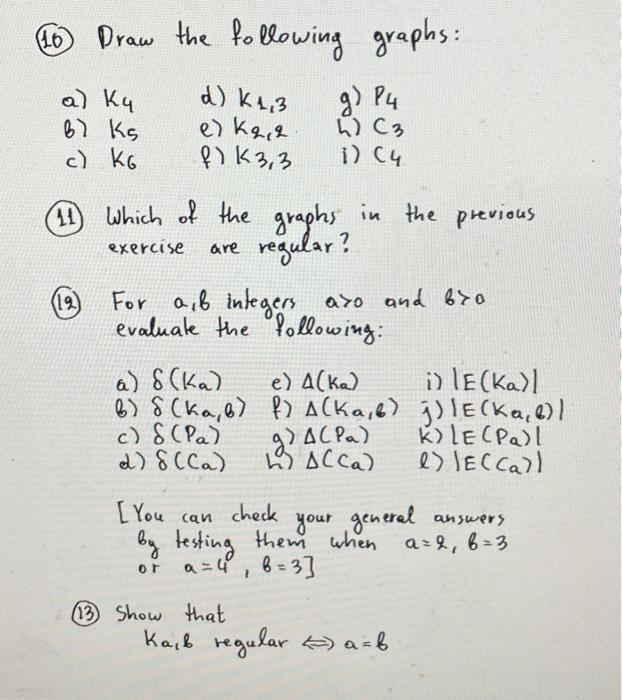 (10) Draw the following graphs:
a) K4 d) K1,3 g) P4
b) K5 e) K2,2 h) C3
c) K6 f) K3,3 i) C4
(11) Which of the graphs in the previous
exercise are regular?
(12) For a,b integers a>0 and b>0
evaluate the following:
a) δ(Ka) e) Δ(Ka) i) |E(Ka)|
b) δ(Ka,b) f) Δ(Ka,b) j) |E(Ka,b)|
c) δ(Pa) g) Δ(Pa) k) |E(Pa)|
d) δ(Ca) h) Δ(Ca) l) |E(Ca)|
[You can check your general answers
by testing them when a=2, b=3
or a=4, b=3]
(13) Show that
Ka,b regular ⇔ a=b